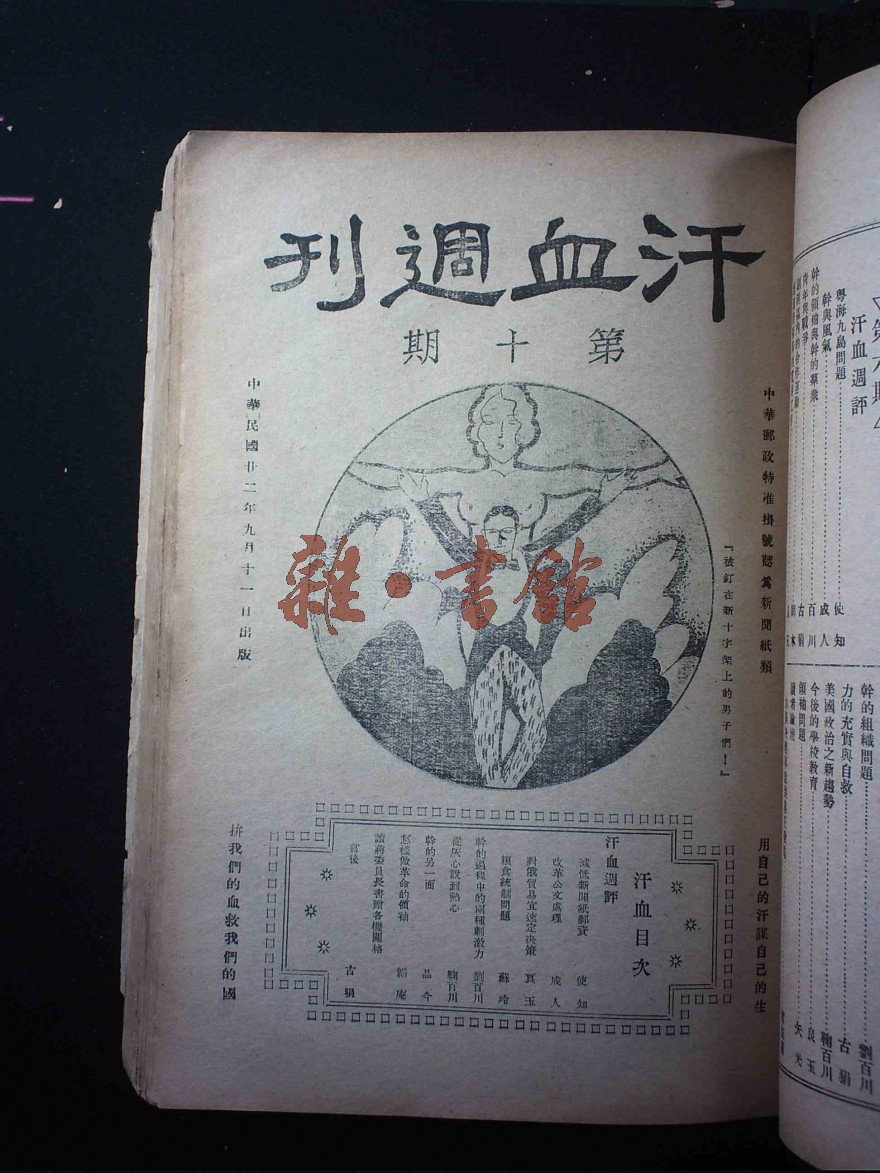 汗血週刊
第十期
中華郵政特准掛號認爲新聞紙類
『被釘在新十字架上的男子們!』
中華民國廿二年九月十一日出版
雜·書館
用自己的汗謀自己的生
拚我們的血救我們的國
汗血目次
汗血週評
減低新聞紙郵資 使知
改革公文處理 成人
對俄貿易宜速定決策 真玉
糧食統制問題 蘇玲
幹的過程中的兩種刺激力 劉百川
從灰心說到熱心 鞠百川
幹的另一面 品今
怎樣做革命的領袖 韜庵
讀蔣委員長書贈各機關格言後 古狷
第六期
汗血週評
粵海九島問題 使知
幹與風氣 成人
幹的領袖與幹的羣衆 百川
青年與戰爭 古狷
幹的組織問題 劉百川
力的充實與自救 古狷
美國政治之新趨勢 鞠百川
今後的學校教育 良玉
領袖問題 矢光